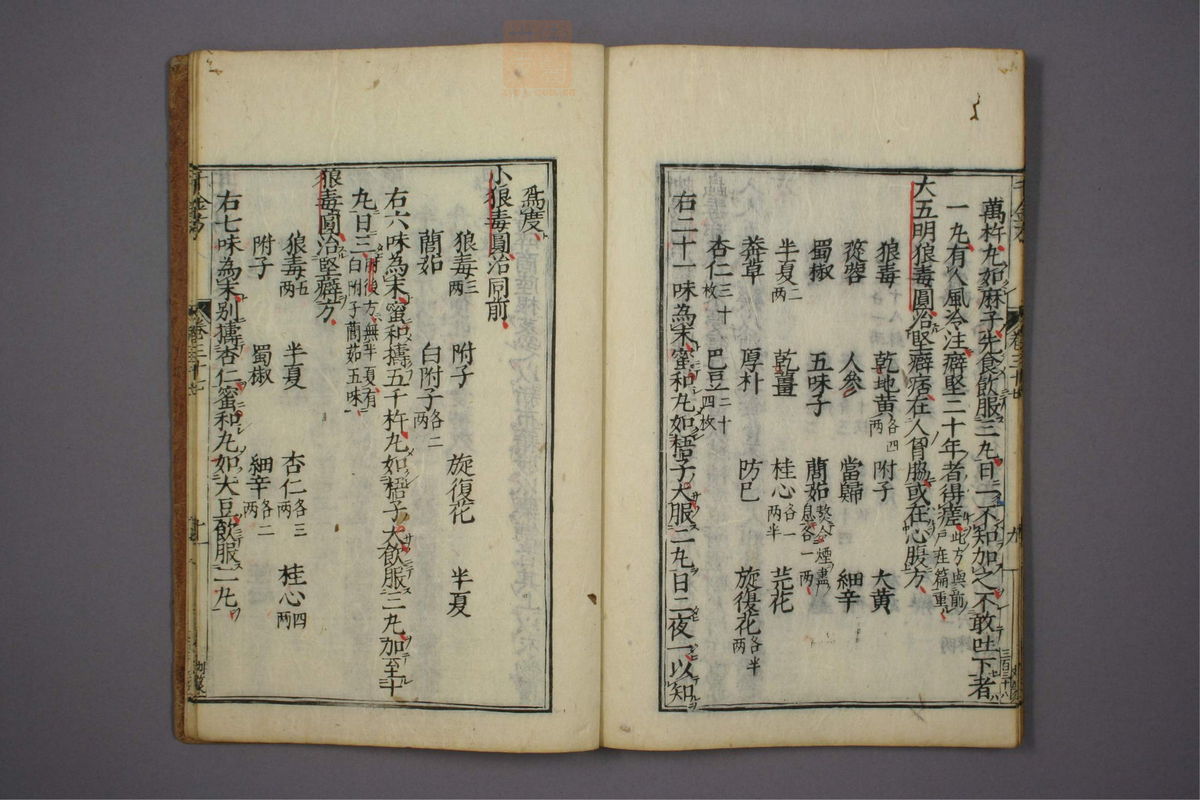 萬杵丸如麻子先食飲服三丸日二不知加之不敢吐下者
一丸有人風冷注癖堅二十年者得瘥此方與前尸在篇重
大五明狼毒圓治堅癖痞在人胷脇或在心腹方
狼毒 乾地黃各四兩 附子 大黃
蓯蓉 人參 當歸 細辛
蜀椒 五味子 䕡茹熬令煙盡息各一兩
半夏二兩 乾薑 桂心各一兩半 芫花
莽草 厚朴 防巳 旋復花各半兩
杏仁三十枚 巴豆二十四枚
右二十一味為末蜜和丸如梧子大服二丸日二夜一以知
爲度
小狼毒圓治同前
狼毒三兩 附子 旋復花 半夏
䕡茹 白附子各二兩
右六味為末蜜和擣五千杵丸如梧子大飲服三丸加至十
丸日三前後方無半夏有白附子䕡茹五味
狼毒圓治堅癖方
狼毒五兩 半夏 杏仁各三兩 桂心四兩
附子 蜀椒 細辛各二兩
右七味為末别擣杏仁蜜和丸如大豆飲服二丸